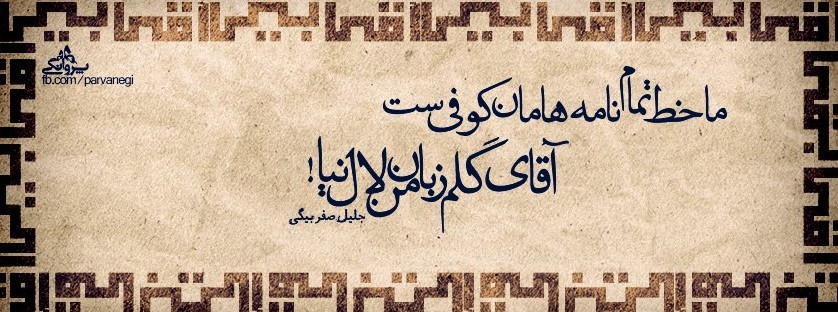 پروانگی
fb.com/parvanegi
ما خط تمام نامه هامان کوفی ست
آقای گلم زبان من لال نیا!
جلیل صفربیگی